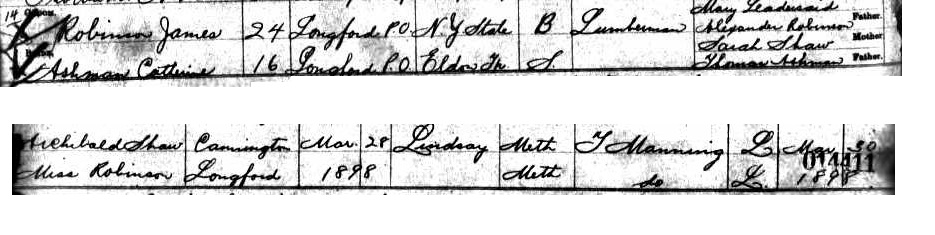 Mary Leadersaid
14 Groom. Father.
Robinson James 24 Longford P.O. N Y State B Lumberman Alexander Robinson
Mother
Sarah Shaw
Bride.
Ashman Catherine 16 Longford P.O. Eldon Tp S Thomas Ashman Father.
Archibald Shaw Cannington Mar 28 Lindsay Meth T Manning L Mar 30
014411
Miss Robinson Longford 1898 Meth do L. 1898